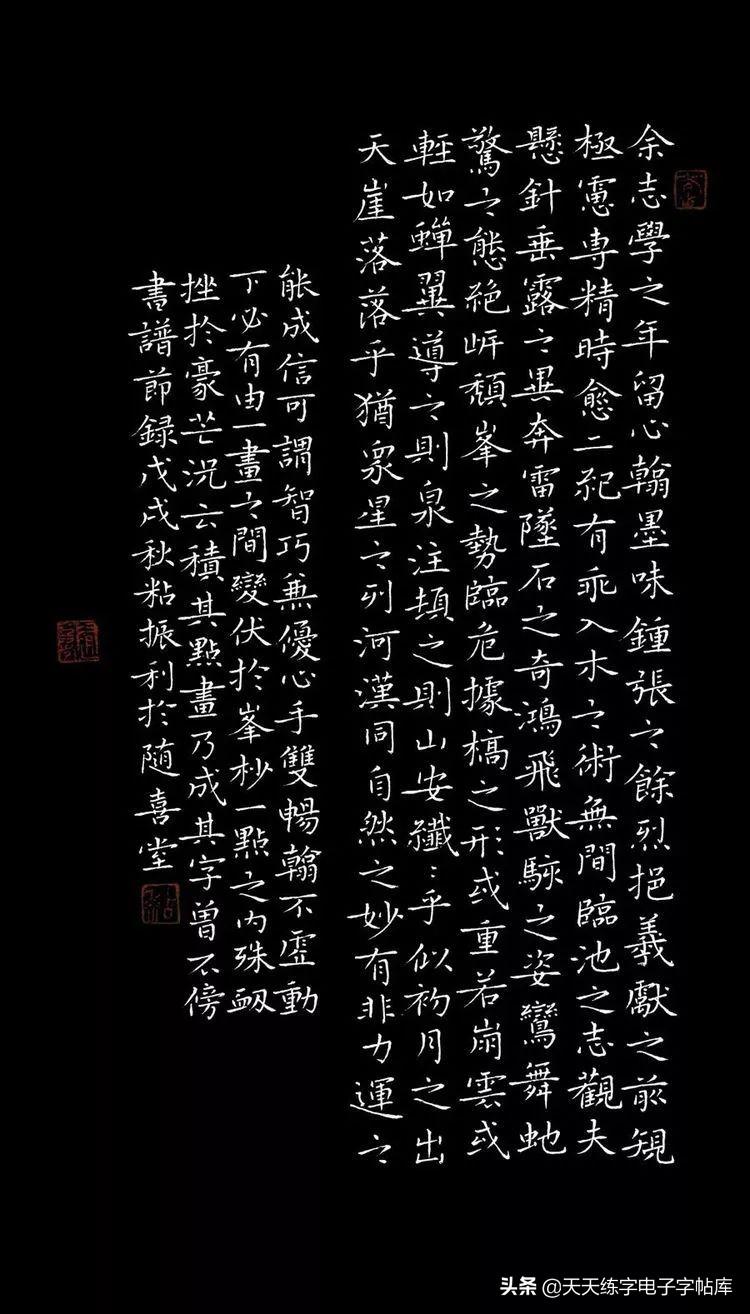 余志學之年留心翰墨味鍾張之餘烈挹羲獻之前規
極慮専精時愈二紀有乖入木之術無間臨池之志觀夫
懸針垂露之異奔雷墜石之奇鴻飛獸駭之姿鸞舞虵
驚之態絕岸頹峯之勢臨危據槁之形或重若崩雲或
輕如蟬翼導之則泉注頓之則山安纖〻乎似初月之出
天崖落落乎猶衆星之列河漢同自然之妙有非力運之
能成信可謂智巧兼優心手雙暢翰不虛動
下必有由一畫之間變伏於峯杪一點之內殊衂
挫於豪芒況云積其點畫乃成其字曾不傍
書譜節録戊戌秋粘振利於随喜堂
头条 @天天练字电子字帖库